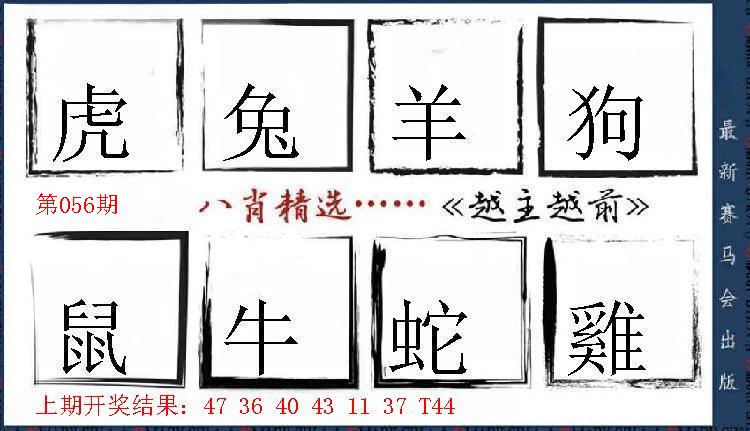 虎 兔 羊 狗
第056期 八肖精选……《越主越前》
鼠 牛 蛇 雞
上期开奖结果: 47 36 40 43 11 37 T44
最新赛马会出版